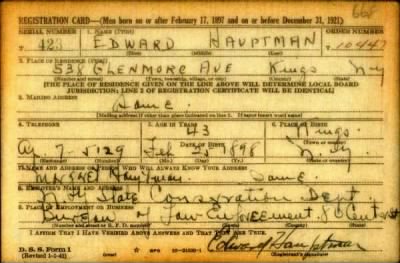 668
REGISTRATION CARD—(Men born on or after February 17, 1897 and on or before December 31, 1921)
SERIAL NUMBER 1. NAME (Print) ORDER NUMBER
423 EDWARD HAUPTMAN 10447
(First) (Middle) (Last)
2. PLACE OF RESIDENCE (Print)
538 GLENMORE AVE Kings N.Y
(Number and street) (Town, township, village, or city) (County) (State)
[THE PLACE OF RESIDENCE GIVEN ON THE LINE ABOVE WILL DETERMINE LOCAL BOARD
JURISDICTION; LINE 2 OF REGISTRATION CERTIFICATE WILL BE IDENTICAL]
3. MAILING ADDRESS
Same
[Mailing address if other than place indicated on line 2. If same insert word same]
4. TELEPHONE 5. AGE IN YEARS 6. PLACE OF BIRTH
43 Kings
DATE OF BIRTH
7-8129 Feb 25 1898 N.Y.
7. NAME AND ADDRESS OF PERSON WHO WILL ALWAYS KNOW YOUR ADDRESS
Hauptman Same
8. EMPLOYER'S NAME AND ADDRESS
State Conservation Dept
9. PLACE OF EMPLOYMENT OR BUSINESS
Bureau of Law Enforcement 80 Center St
I AFFIRM THAT I HAVE VERIFIED ABOVE ANSWERS AND THAT THEY ARE TRUE.
D. S. S. Form 1
Edward Hauptman
(Registrant's signature)